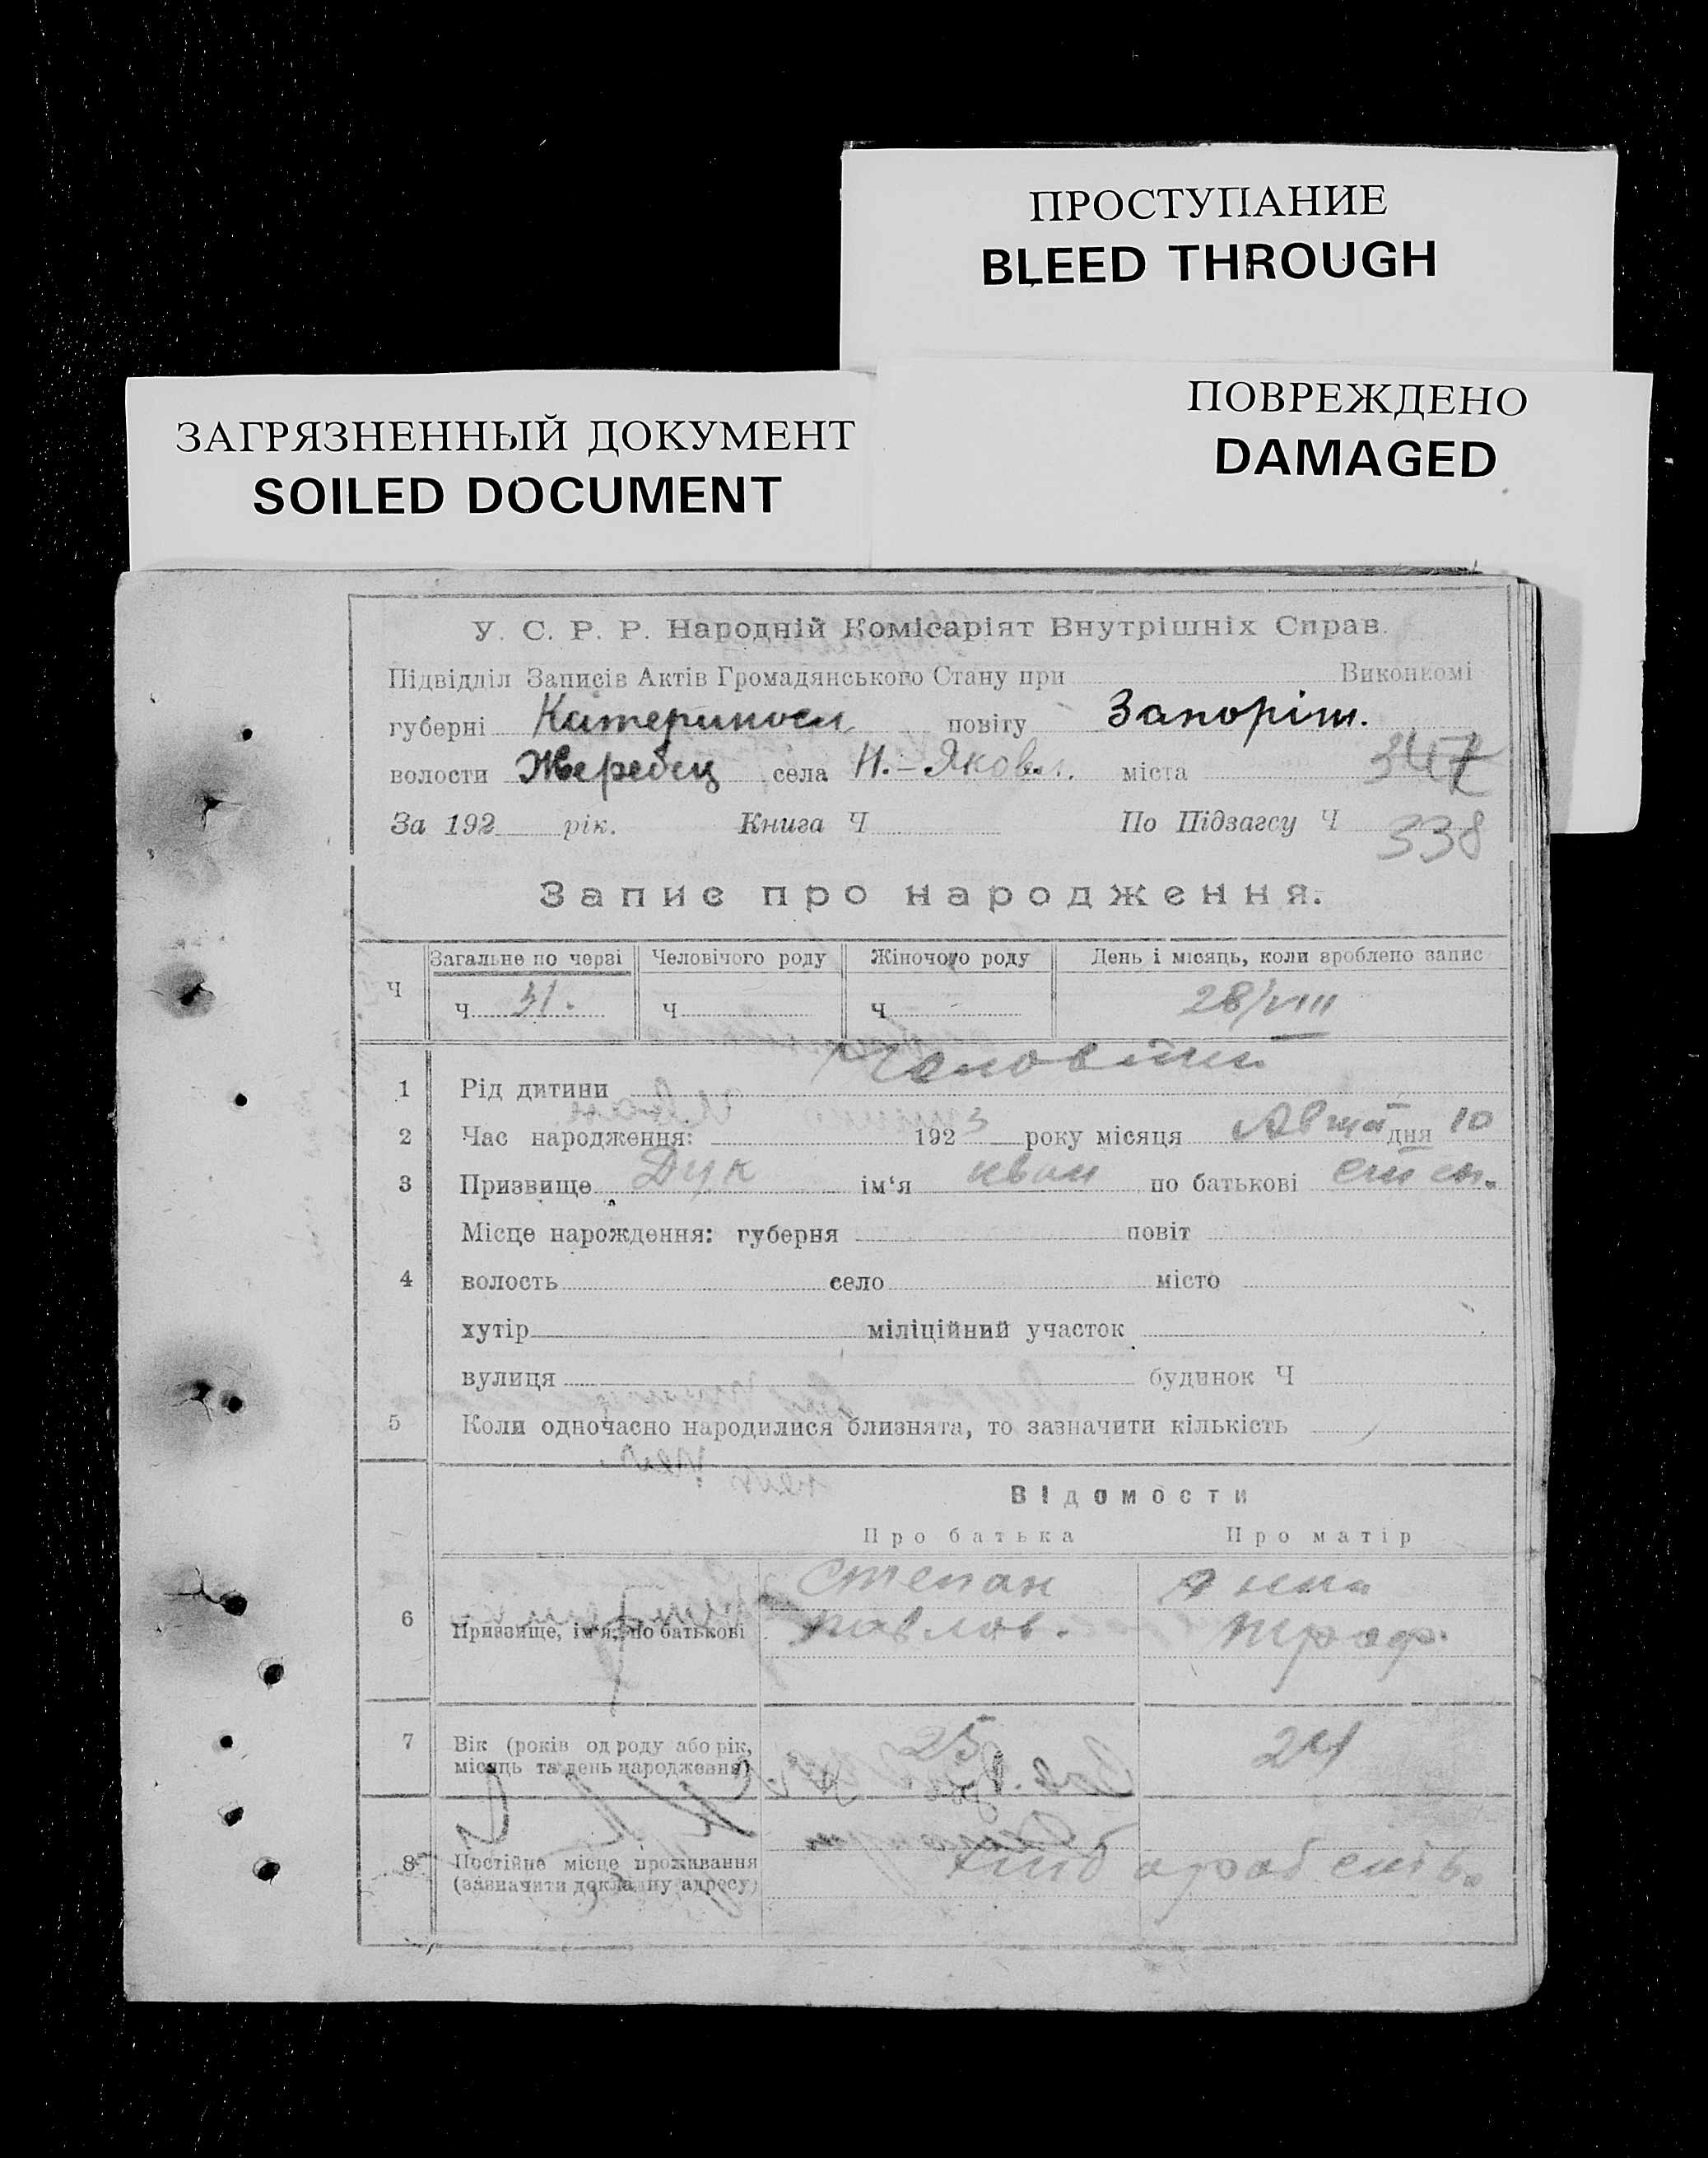 ПРОСТУПАНИЕ
BLEED THROUGH
ПОВРЕЖДЕНО
DAMAGED
ЗАГРЯЗНЕННЫЙ ДОКУМЕНТ
SOILED DOCUMENT
У. С. Р. Р. Народній Комісаріят Внутрішніх Справ.
Підвідділ Записів Актів Громадянського Стану при Виконкомі
губерні Катериносл. повіту Запоріж.
волости Жеребец села Н.-Яковл. міста 347
За 192 рік. Книга Ч По Підзагсу Ч 338
Запис про народження.
Загальне по черзі Человічого роду Жіночого роду День і місяць, коли зроблено запис
Ч Ч 31. Ч Ч 28/VIII
1 Рід дитини Человічий
2 Час народження: 1923 року місяця дня 10
3 Призвище Дук ім'я Иван по батькові
Місце народження: губерня повіт
4 волость село місто
хутір міліційний участок
вулиця будинок Ч
5 Коли одночасно народилися близнята, то зазначити кількість
Відомости
Про батька Про матір
6 Призвище, ім'я, по батькові Степан Павлов. Анна Троф.
7 Вік (років од роду або рік, місяць та день народження) 25 24
8 Постійне місце проживання (зазначити докладну адресу)